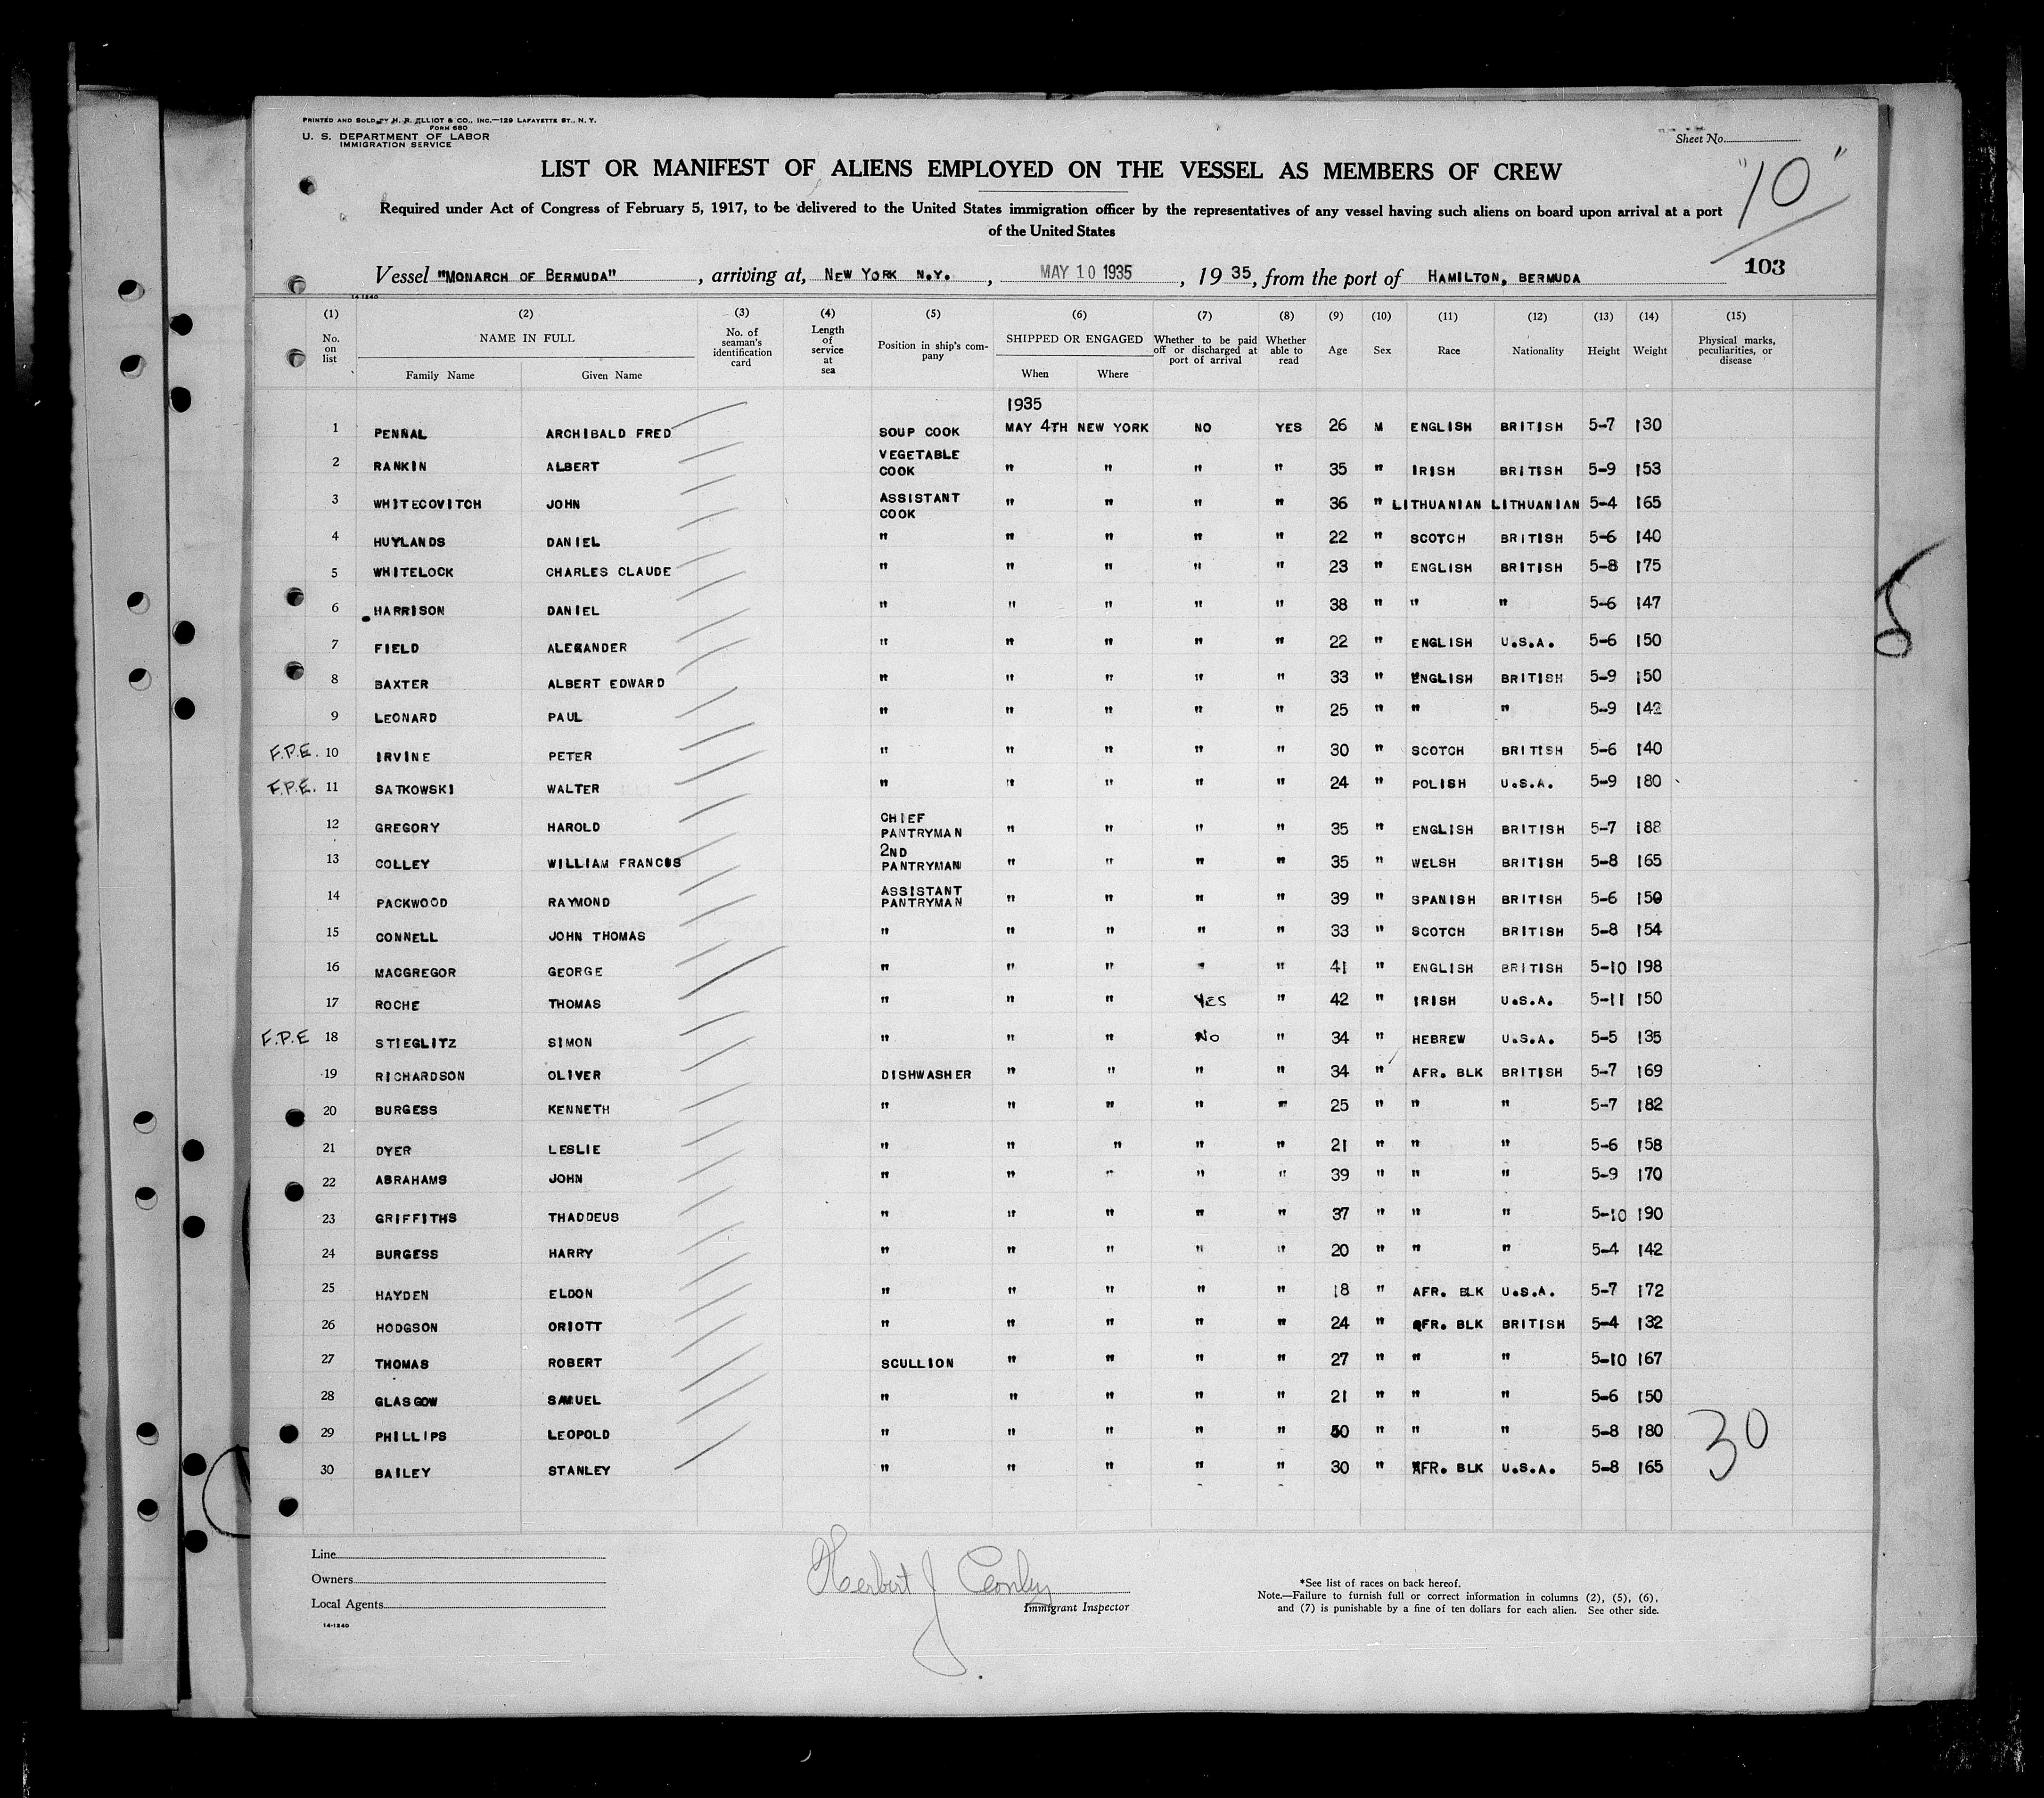 PRINTED AND SOLD BY H. R. ELLIOT & CO., INC.—129 LAFAYETTE ST., N. Y.
FORM 680
U. S. DEPARTMENT OF LABOR
IMMIGRATION SERVICE
Sheet No.
"10"
LIST OR MANIFEST OF ALIENS EMPLOYED ON THE VESSEL AS MEMBERS OF CREW
Required under Act of Congress of February 5, 1917, to be delivered to the United States immigration officer by the representatives of any vessel having such aliens on board upon arrival at a port
of the United States
103
Vessel "MONARCH OF BERMUDA", arriving at, NEW YORK N.Y., MAY 10 1935, 1935, from the port of HAMILTON, BERMUDA
14-1240
(1) (2) (3) (4) (5) (6) (7) (8) (9) (10) (11) (12) (13) (14) (15)
No. on list NAME IN FULL Family Name Given Name No. of seaman's identification card Length of service at sea Position in ship's company SHIPPED OR ENGAGED When Where Whether to be paid off or discharged at port of arrival Whether able to read Age Sex Race Nationality Height Weight Physical marks, peculiarities, or disease
1935
1 PENNAL ARCHIBALD FRED SOUP COOK MAY 4TH NEW YORK NO YES 26 M ENGLISH BRITISH 5-7 130
2 RANKIN ALBERT VEGETABLE COOK " " " " 35 " IRISH BRITISH 5-9 153
3 WHITECOVITCH JOHN ASSISTANT COOK " " " " 36 " LITHUANIAN LITHUANIAN 5-4 165
4 HUYLANDS DANIEL " " " " " 22 " SCOTCH BRITISH 5-6 140
5 WHITELOCK CHARLES CLAUDE " " " " " 23 " ENGLISH BRITISH 5-8 175
6 HARRISON DANIEL " " " " " 38 " " " 5-6 147
7 FIELD ALEXANDER " " " " " 22 " ENGLISH U.S.A. 5-6 150
8 BAXTER ALBERT EDWARD " " " " " 33 " ENGLISH BRITISH 5-9 150
9 LEONARD PAUL " " " " " 25 " " " 5-9 142
F.P.E. 10 IRVINE PETER " " " " " 30 " SCOTCH BRITISH 5-6 140
F.P.E. 11 SATKOWSKI WALTER " " " " " 24 " POLISH U.S.A. 5-9 180
12 GREGORY HAROLD CHIEF PANTRYMAN " " " " 35 " ENGLISH BRITISH 5-7 188
13 COLLEY WILLIAM FRANCUS 2ND PANTRYMAN " " " " 35 " WELSH BRITISH 5-8 165
14 PACKWOOD RAYMOND ASSISTANT PANTRYMAN " " " " 39 " SPANISH BRITISH 5-6 150
15 CONNELL JOHN THOMAS " " " " " 33 " SCOTCH BRITISH 5-8 154
16 MACGREGOR GEORGE " " " " " 41 " ENGLISH BRITISH 5-10 198
17 ROCHE THOMAS " " " YES " 42 " IRISH U.S.A. 5-11 150
F.P.E 18 STIEGLITZ SIMON " " " No " 34 " HEBREW U.S.A. 5-5 135
19 RICHARDSON OLIVER DISHWASHER " " " " 34 " AFR. BLK BRITISH 5-7 169
20 BURGESS KENNETH " " " " " 25 " " " 5-7 182
21 DYER LESLIE " " " " " 21 " " " 5-6 158
22 ABRAHAMS JOHN " " " " " 39 " " " 5-9 170
23 GRIFFITHS THADDEUS " " " " " 37 " " " 5-10 190
24 BURGESS HARRY " " " " " 20 " " " 5-4 142
25 HAYDEN ELDON " " " " " 18 " AFR. BLK U.S.A. 5-7 172
26 HODGSON ORIOTT " " " " " 24 " AFR. BLK BRITISH 5-4 132
27 THOMAS ROBERT SCULLION " " " " 27 " " " 5-10 167
28 GLASGOW SAMUEL " " " " " 21 " " " 5-6 150
29 PHILLIPS LEOPOLD " " " " " 50 " " " 5-8 180
30 BAILEY STANLEY " " " " " 30 " AFR. BLK U.S.A. 5-8 165
30
Line
Owners
Local Agents
14-1240
Herbert J Conley
Immigrant Inspector
*See list of races on back hereof.
Note.—Failure to furnish full or correct information in columns (2), (5), (6),
and (7) is punishable by a fine of ten dollars for each alien. See other side.